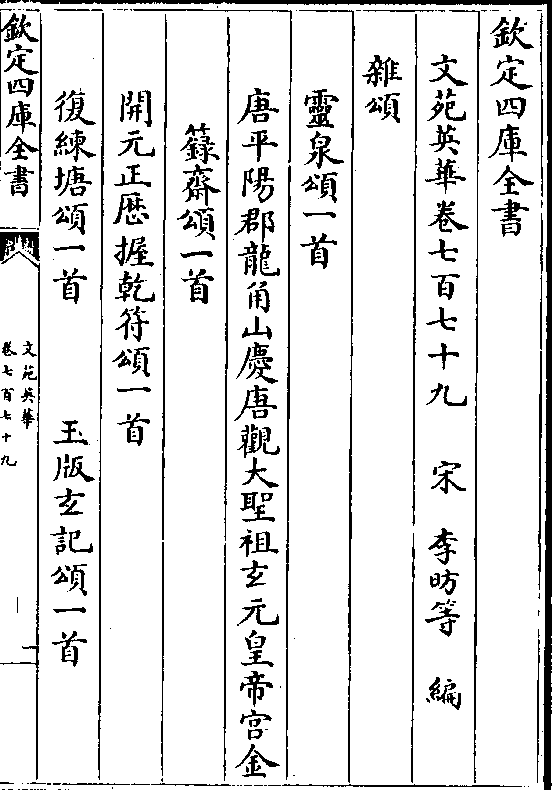 欽定四庫全書
文苑英華卷七百七十九 宋 李昉等 編
雜頌
靈泉頌一首
唐平陽郡龍角山慶唐觀大聖祖玄元皇帝宫金
籙齋頌一首
開元正歴握乾符頌一首
復練塘頌一首 玉版玄記頌一首
欽定四庫全書
文苑英華
卷七百七十九
一